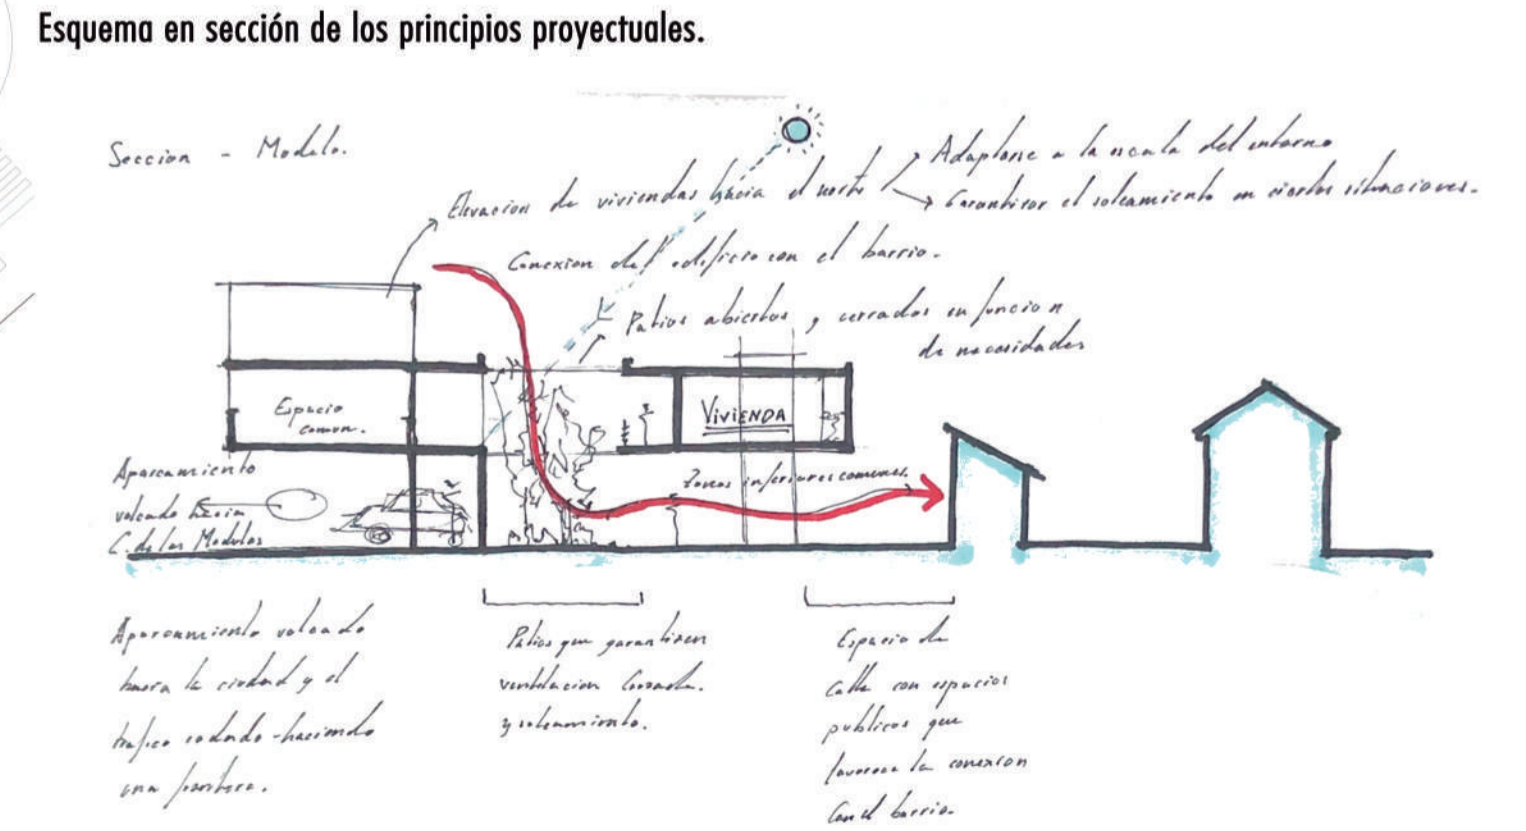 Esquema en sección de los principios proyectuales.
Seccion - Modelo.
Elevacion de viviendas hacia el norte
Adaptarse a la escala del entorno
Garantizar el soleamiento en ciertas situaciones.
Conexion del edificio con el barrio.
Patios abiertos y cerrados en funcion
de necesidades
Espacio
comun.
VIVIENDA
Aparcamiento
volcado hacia
C. de los Modulos
Zonas inferiores comunes.
Aparcamiento volcado
hacia la ciudad y el
trafico rodado - haciendo
una frontera.
Patios que garanticen
ventilacion cruzada.
y soleamiento.
Espacio de
calle con espacios
publicos que
favorece la conexion
con el barrio.